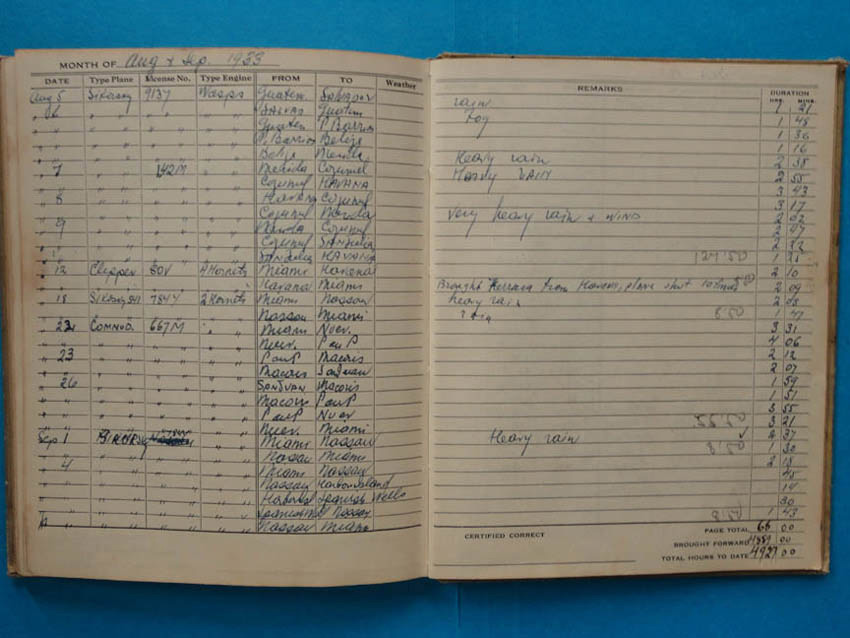 MONTH OF Aug & Sep. 1933
DATE Type Plane License No. Type Engine FROM TO Weather
REMARKS DURATION HRS. MINS.
Aug 5 Sikorsky 9137 Wasps Guatem. Salvador rain 1 21
6 " " " Salvad Guatem fog 1 48
" " " " Guatem P. Barrios 1 36
" " " " P. Barrios Belize 1 16
" " " " Belize Merida Heavy rain 2 38
7 " 142M " Merida Cozumel Heavy rain 2 55
" " " " Cozumel HAVANA 3 43
8 " " " HAVANA Cozumel 3 17
" " " " Cozumel Merida Very heavy rain & WIND 2 02
9 " " " Merida Cozumel 2 47
" " " " Cozumel SanJulia 2 22
" " " " SANJulia HAVANA 127.50 1
12 Clipper 80V 4 Hornets Miami Havana 2 10
" " " " Havana Miami Brought from Havana, plane shot 2 09
18 Sikorsky S41 784Y 2 Hornets Miami Nassau heavy rain 2 08
" " " " Nassau Miami rain 8.50 1 47
22 COMMOD. 667M " Miami Nuev. 3 31
" " " " Nuev. P au P 4 06
23 " " " P au P Macoris 2 12
" " " " Macoris SanJuan 2 07
26 " " " SANJUAN Macoris 1 59
" " " " Macoris P au P 1 51
" " " " P au P Nuev 3 55
" " " " Nuev. Miami 3 21
Sep 1 " " Miami Nassau Heavy rain 2 37
" " " " Nassau Miami 8.50 1 30
4 " " " Miami Nassau 2 18
" " " " Nassau Harbor Island 45
" " " " Harbor Spanish Wells 14
" " " " Nassau 30
" " " " Nassau Miami 1 43
CERTIFIED CORRECT PAGE TOTAL 68 00
BROUGHT FORWARD 4859 00
TOTAL HOURS TO DATE 4927 00